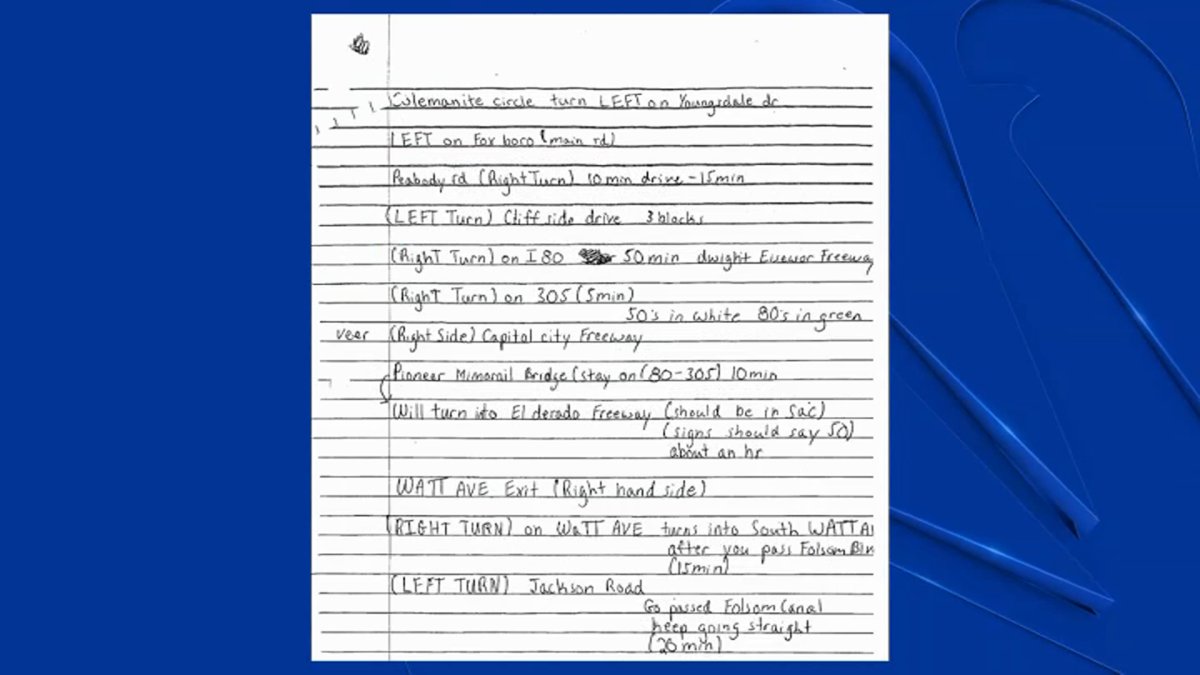 Colemanite circle turn LEFT on Youngsdale dr
LEFT on Foxboro (main rd)
Peabody rd (Right Turn) 10 min drive - 15min
(LEFT Turn) Cliff side drive 3 blocks
(Right Turn) on I 80 50 min dwight Freeway
(Right Turn) on 305 (5min)
50's in white 80's in green
veer (Right Side) Capitol city Freeway
Pioneer Mimorail Bridge (stay on (80-305) 10 min
Will turn into El derado Freeway (should be in Sac)
(signs should say 50)
about an hr
WATT AVE Exit (Right hand side)
(RIGHT TURN) on WaTT AVE turns into South WATT A
after you pass Folsom Blv
(15min)
(LEFT TURN) Jackson Road
Go passed Folsom Canal
keep going straight
(20 min)